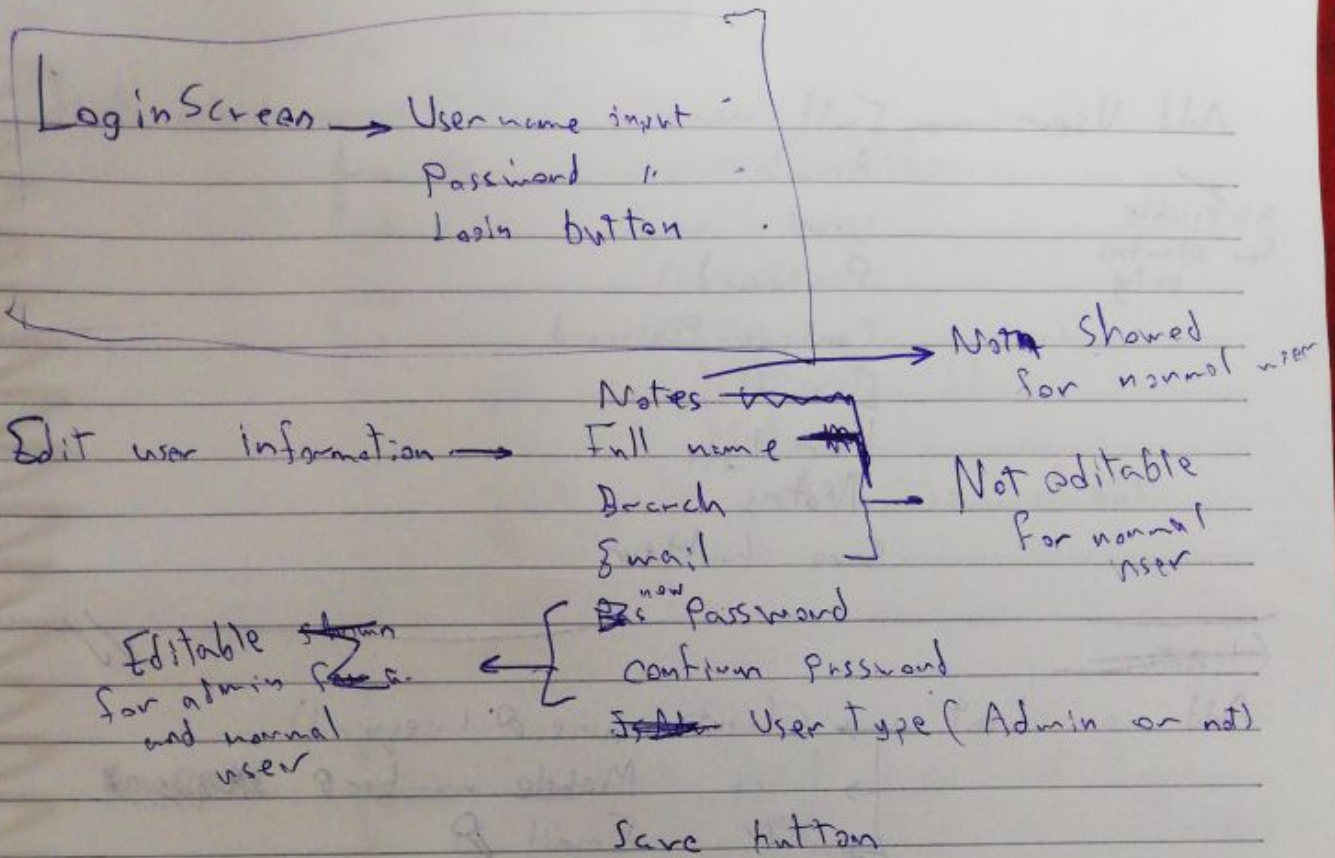 Login Screen → Username input
Password "
Login button
Not Showed
for normal user
Notes
Edit user information → Full name
Branch
Email
Not editable
for normal
user
new Password
confirm Password
User type (Admin or not)
Editable
for admin
and normal
user
Save button